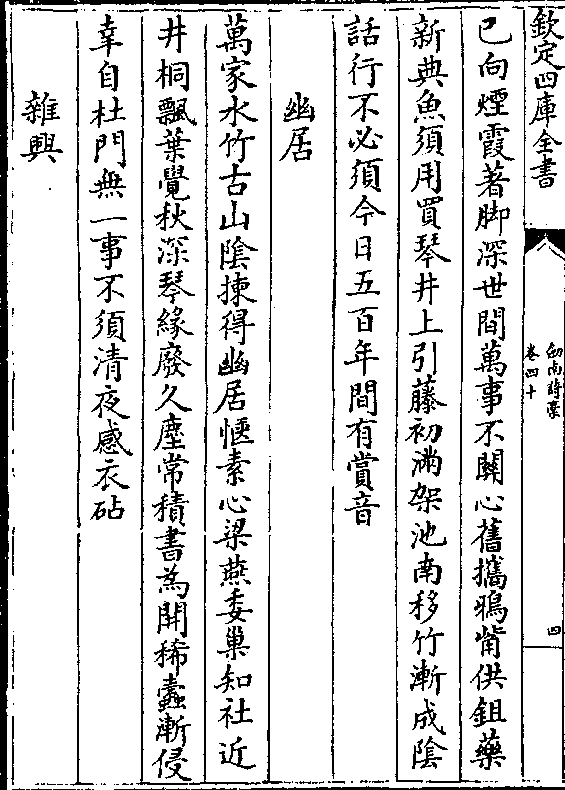 欽定四庫全書
劍南詩稾
卷四十
四
已向煙霞著脚深世間萬事不關心舊攜鵶觜供鉏藥
新典魚須用買琴井上引藤初滿架池南移竹漸成陰
話行不必須今日五百年間有賞音
幽居
萬家水竹古山陰揀得幽居愜素心梁燕委巢知社近
井桐飄葉覺秋深琴緣廢久塵常積書為開稀蠧漸侵
幸自杜門無一事不須清夜感衣砧
雜興